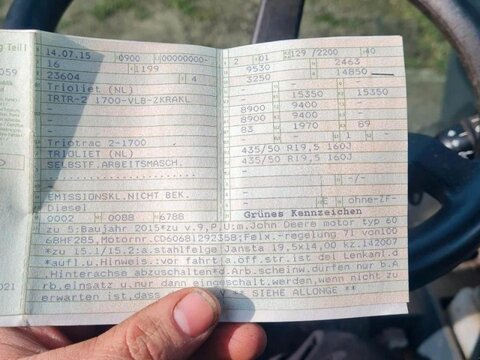 g Teil I
14.07.15 0900 00000000-
16 1199
23604 4
Trioliet (NL)
TRTR-2 1700-VLB-ZKRAKL
Triotrac 2-1700
TRIOLIET (NL)
SELBST.ARBEITSMASCH.
EMISSIONSKL.NICHT BEK.
Diesel
0002 0088 6788
2 01 129 /2200 40
9530 2463
3250 14850
15350 15350
8900 9400
8900 9400
83 1970 89
1
435/50 R19,5 160J
435/50 R19,5 160J
-/-
E ohne-ZF-
Grünes Kennzeichen
zu 5:Baujahr 2015*zu v.9,P,U:m.John Deere motor typ 60
68HF285,Motornr.CD6068L292358;Felx.-regelung 71 von100
*zu 15.1/15.2:a.stahlfelge Jansta 19,5x14,00 kz.142007
*auf1.u.Hinweis:vor fahrt a.öff.str.ist del Lenkanl.d
.Hinterachse abzuschalten*d.Arb.scheinw.dürfen nur b.A
rb.einsatz u.nur dann eingeschalt.werden,wenn nicht zu
erwarten ist.dass ** SIEHE ALLONGE **
059
021